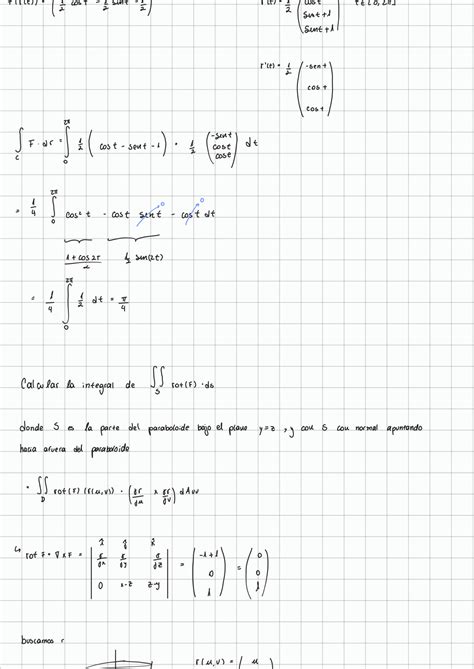 r(t) = 1/2 ( cos t
sent + 1
sent + 1 )
r'(t) = 1/2 ( -sent
cos t
cos t )
∫_C F · dr = ∫_0^{2π} 1/2 ( cost - sent - 1 ) · 1/2 ( -sent
cost
cost ) dt
= 1/4 ∫_0^{2π} cos² t - cost sent - cost dt
1/2 sen(2t)
= 1/4 ∫_0^{2π} 1/2 dt = π/4
Calcular la integral de ∬_S rot(F) · ds
donde S es la parte del paraboloide bajo el plano y=z , y con S con normal apuntando
hacia afuera del paraboloide
∬_D rot(F) (r(u,v)) · ( ∂r/∂u × ∂r/∂v ) dAuv
rot F = ∇ x F = | ∂/∂x ∂/∂y ∂/∂z
0 x-z z-y | = ( -1+1
0
1 ) = ( 0
0
1 )
buscamos r
r(u,v) = ( u